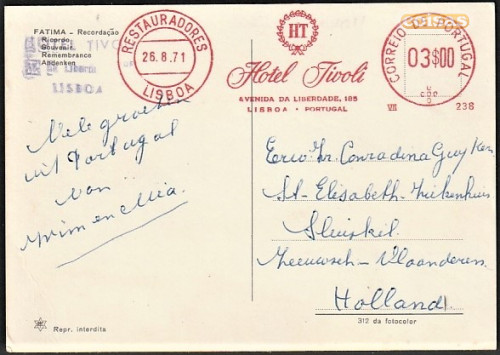 FATIMA - Recordação
Ricordo
Souvenir
Remembrance
Andenken
HOTEL TIVOLI
LISBOA
RESTAURADORES
26.8.71
LISBOA
HT
Hotel Tivoli
AVENIDA DA LIBERDADE, 185
LISBOA • PORTUGAL
CORREIO DE PORTUGAL
03$00
VII
238
Vele groeten
uit Portugal
van
Wim en Mia.
Eerw. Zr. Conradina Guyken
St-Elisabeth-Ziekenhuis
Sluiskil.
Zeeuwsch-Vlaanderen.
Holland.
Repr. interdita
312 da fotocolor